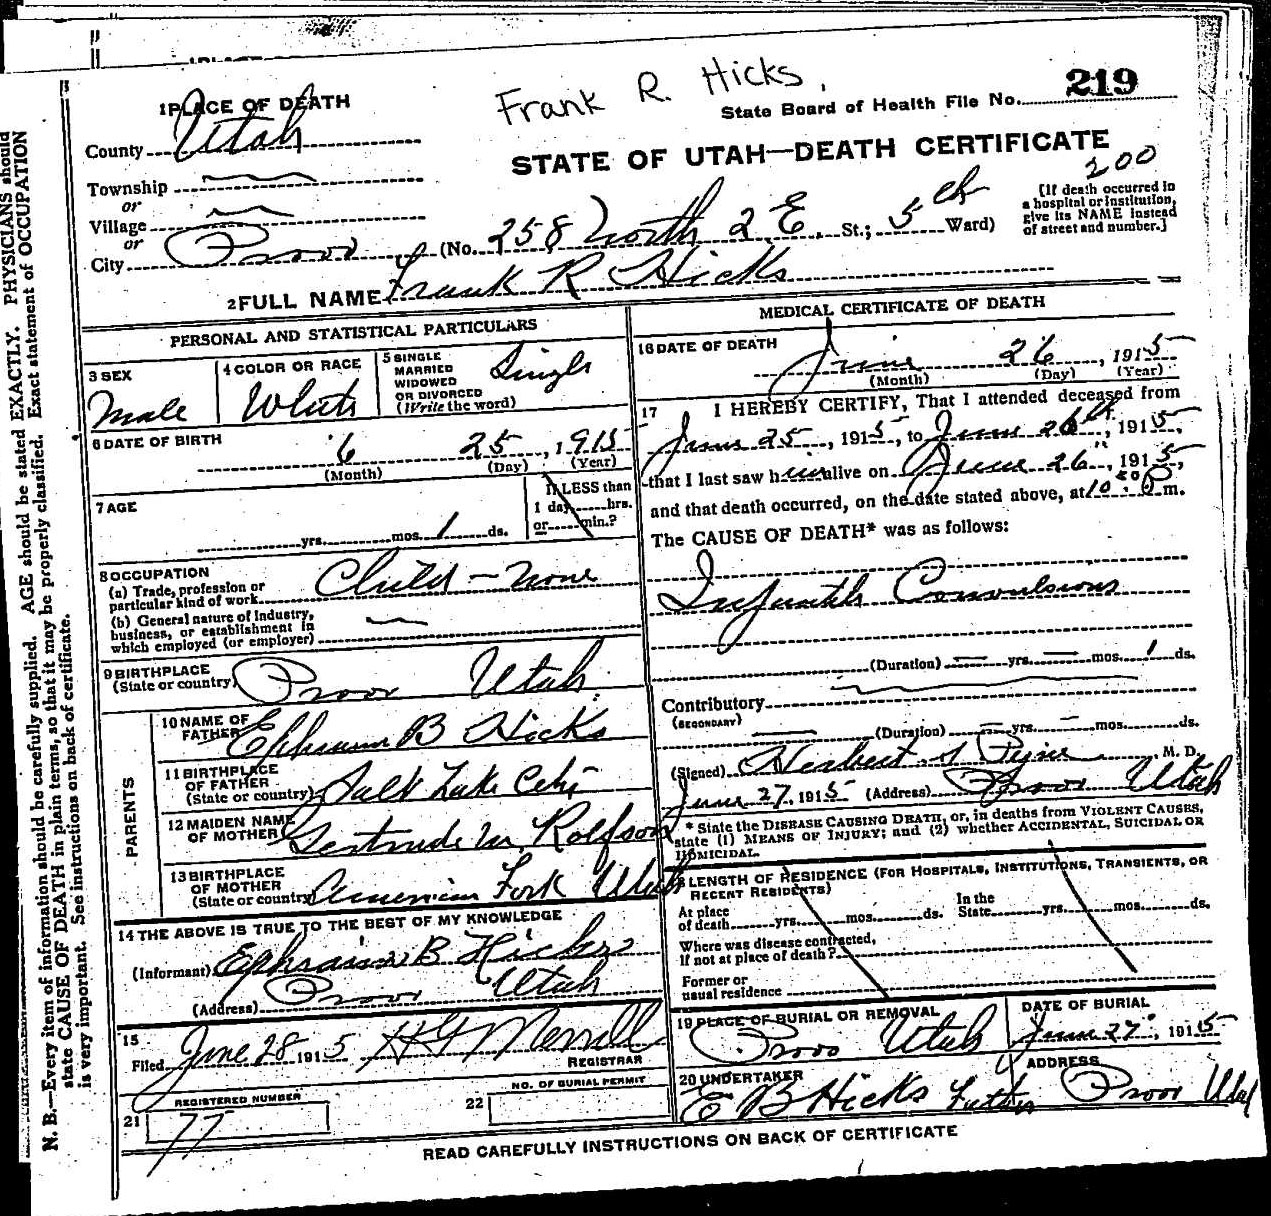 Frank R. Hicks,
219
State Board of Health File No.
1 PLACE OF DEATH
STATE OF UTAH—DEATH CERTIFICATE
County Utah
200
Township
or
Village
or
City Provo (No. 258 North 2 E. St.; 5th Ward)
[If death occurred in
a hospital or institution,
give its NAME instead
of street and number.]
2 FULL NAME Frank R Hicks
PERSONAL AND STATISTICAL PARTICULARS
3 SEX
Male
4 COLOR OR RACE
White
5 SINGLE
MARRIED
WIDOWED
OR DIVORCED
(Write the word)
Single
6 DATE OF BIRTH
6 25, 1915
(Month) (Day) (Year)
7 AGE
yrs. mos. 1 ds.
If LESS than
1 day hrs.
or min.?
8 OCCUPATION
(a) Trade, profession or
particular kind of work Child - none
(b) General nature of Industry,
business, or establishment in
which employed (or employer)
9 BIRTHPLACE
(State or country) Provo Utah.
PARENTS
10 NAME OF
FATHER Ephraim B Hicks
11 BIRTHPLACE
OF FATHER
(State or country) Salt Lake City
12 MAIDEN NAME
OF MOTHER Gertrude M. Rolfson
13 BIRTHPLACE
OF MOTHER
(State or country) American Fork Utah
14 THE ABOVE IS TRUE TO THE BEST OF MY KNOWLEDGE
(Informant) Ephraim B Hicks
(Address) Provo Utah
15
Filed June 28 1915 H G Merrill
REGISTRAR
REGISTERED NUMBER
21 77
NO. OF BURIAL PERMIT
22
MEDICAL CERTIFICATE OF DEATH
16 DATE OF DEATH
June 26, 1915
(Month) (Day) (Year)
17 I HEREBY CERTIFY, That I attended deceased from
June 25, 1915, to June 26th, 1915,
that I last saw him alive on June 26", 1915,
and that death occurred, on the date stated above, at 10:00 P m.
The CAUSE OF DEATH* was as follows:
Infantile Convulsions
(Duration) — yrs. — mos. 1 ds.
Contributory
(SECONDARY)
(Duration) — yrs. — mos. ds.
(Signed) Herbert S Pyne M. D.
June 27, 1915 (Address) Provo Utah
* State the DISEASE CAUSING DEATH, or, in deaths from VIOLENT CAUSES,
state (1) MEANS OF INJURY; and (2) whether ACCIDENTAL, SUICIDAL OR
HOMICIDAL.
18 LENGTH OF RESIDENCE (FOR HOSPITALS, INSTITUTIONS, TRANSIENTS, OR
RECENT RESIDENTS)
At place
of death yrs. mos. ds.
In the
State yrs. mos. ds.
Where was disease contracted,
If not at place of death?
Former or
usual residence
19 PLACE OF BURIAL OR REMOVAL
Provo Utah
DATE OF BURIAL
June 27", 1915
20 UNDERTAKER
E B Hicks Father
ADDRESS
Provo Utah
READ CAREFULLY INSTRUCTIONS ON BACK OF CERTIFICATE
N. B.—Every item of information should be carefully supplied. AGE should be stated EXACTLY. PHYSICIANS should
state CAUSE OF DEATH in plain terms, so that it may be properly classified. Exact statement of OCCUPATION
is very important. See instructions on back of certificate.